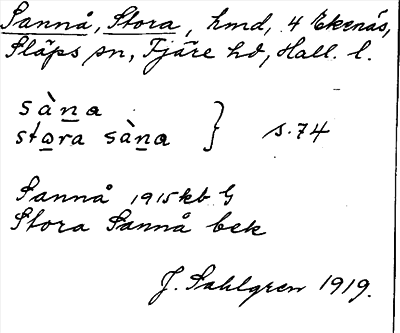 Sannå, Stora, hmd, 4 Ekenäs,
Släps sn, Fjäre hd, Hall. l.
sàna
stora sàna } s. 74
Sannå 1915 kb G
Stora Sannå bek
J. Sahlgren 1919.